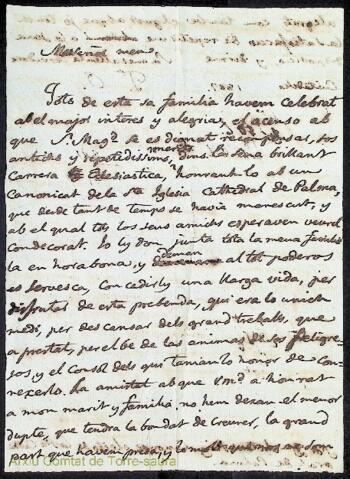 Mol Señor meu,
Tots de esta sa familia havem celebrat
ab el major interes y alegria, el acenso ab
que S. Mag.d se es dignat recompensar, tos
antichs y repetidissims merits dins la sena brillant
Carrera Eclesiastica, honrantlo ab un
Canonicat de la Sta Iglesia Cathedral de Palma,
que desde tant de temps se havia merescut, y
ab el qual tots los seus amichs esperaven veurel
Condecorat. Jo ly don junta tota la meua familia
la en horabona, y deman al tot poderos
es servesca, Concedirly una llarga vida, per
disfrutar de esta prebenda, qui era lo unich
medi, per descansar dels grans treballs, que
a prestat, per el be de las animas de sos feligre-
sos, y el Consol dels qui tenian lo honor de con-
nexerlo. La amistat ab que Vm.d a honrat
a mon marit y familia no hem dexan el menor
dupte, que tendra la bondat de creurer, la gran
part que havem presa, y lo molt que nos
Arxiu Comtat de Torre-saura